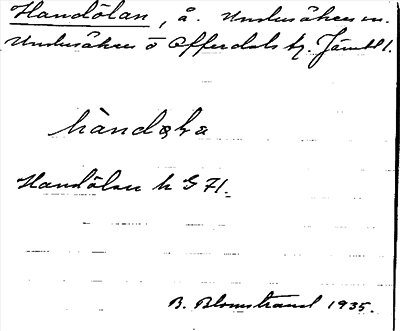 Handölan, å. Undersåkers sn.
Undersåkers o Offerdals tg. Jämtl.
hàndəla
Handölan h G 71.
B. Blomstrand 1935.